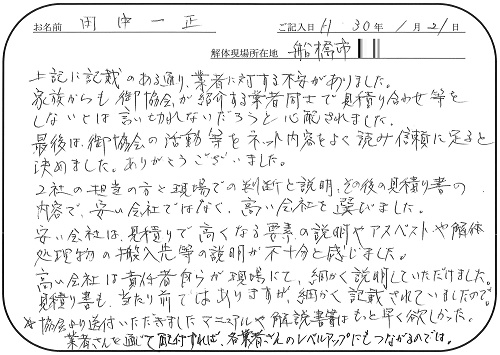 お名前 田中一正 ご記入日 H.30年 1月21日
解体現場所在地 船橋市
上記に記載のある通り、業者に対する不安がありました。
家族からも御協会が紹介する業者同士で見積り合わせ等を
しないとは言い切れないだろうと心配されました。
最後は、御協会の活動等をネット内容をよく読み信頼に足ると
決めました。ありがとうございました。
2社の担当の方と現場での判断と説明、その後の見積り書の
内容で、安い会社ではなく、高い会社を選びました。
安い会社は、見積りで高くなる要素の説明やアスベストや解体
処理物の搬入先等の説明が不十分と感じました。
高い会社は責任者自らが現場にて、細かく説明していただけました。
見積り書も、当たり前ではありますが、細かく記載されていましたので。
※協会より送付いただきましたマニュアルや解説書等はもっと早く欲しかった。
業者さんを通じて配付すれば、各業者さんのレベルアップにもつながるのでは。